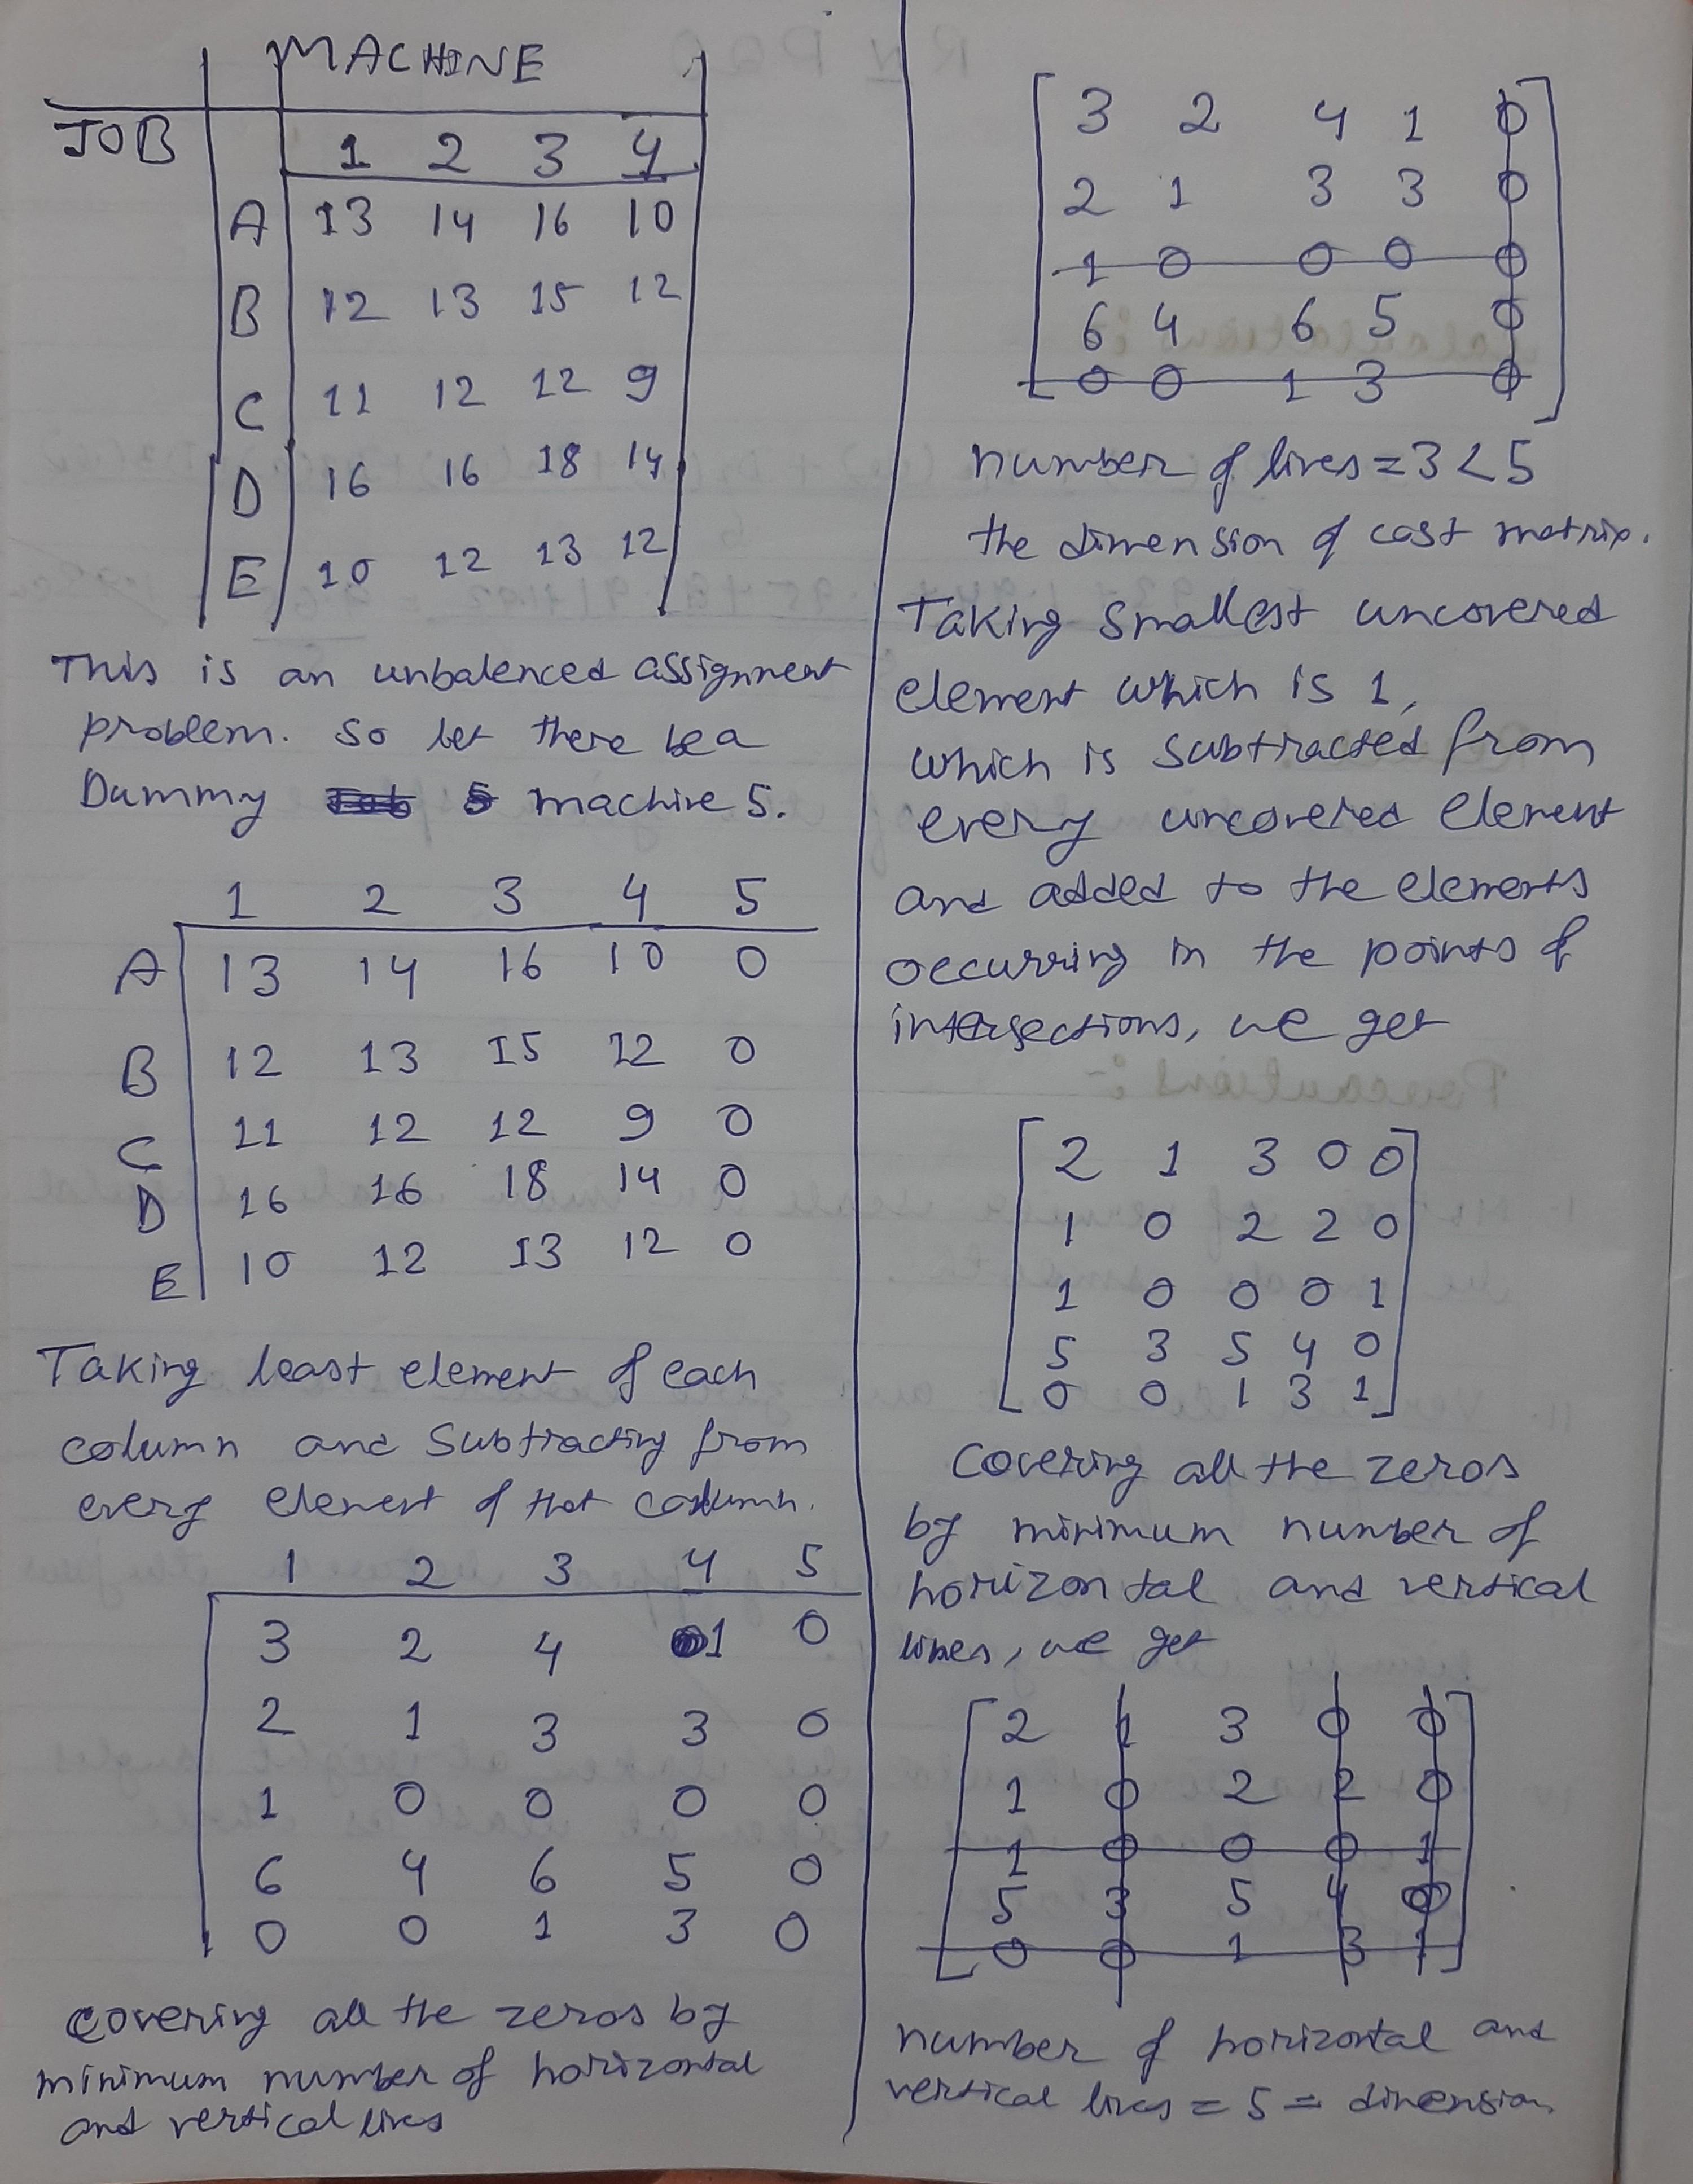 MACHINE
JOB
1 2 3 4
A 13 14 16 10
B 12 13 15 12
C 11 12 12 9
D 16 16 18 14
E 10 12 13 12
This is an unbalenced assignment
problem. So let there be a
Dummy machine 5.
1 2 3 4 5
A 13 14 16 10 0
B 12 13 15 12 0
C 11 12 12 9 0
D 16 16 18 14 0
E 10 12 13 12 0
Taking least element of each
column and Subtracting from
every element of that column.
1 2 3 4 5
3 2 4 1 0
2 1 3 3 0
1 0 0 0 0
6 4 6 5 0
0 0 1 3 0
covering all the zeros by
minimum number of horizontal
and vertical lines
3 2 4 1 0
2 1 3 3 0
1 0 0 0 0
6 4 6 5 0
0 0 1 3 0
number of lines = 3 < 5
the dimension of cost matrix.
Taking smallest uncovered
element which is 1,
which is subtracted from
every uncovered element
and added to the elements
occurring in the points of
intersections, we get
2 1 3 0 0
1 0 2 2 0
1 0 0 0 1
5 3 5 4 0
0 0 1 3 1
Covering all the zeros
by minimum number of
horizontal and vertical
lines, we get
2 1 3 0 0
1 0 2 2 0
1 0 0 0 1
5 3 5 4 0
0 0 1 3 1
number of horizontal and
vertical lines = 5 = dimension